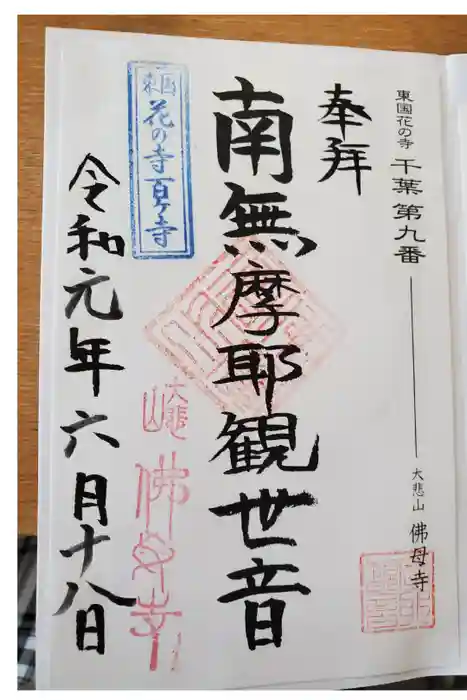 東国花の寺 千葉第九番
大悲山 佛母寺
奉拝
南無摩耶観世音
東国
花の寺百ヶ寺
大悲山
佛母寺
令和元年六月十八日